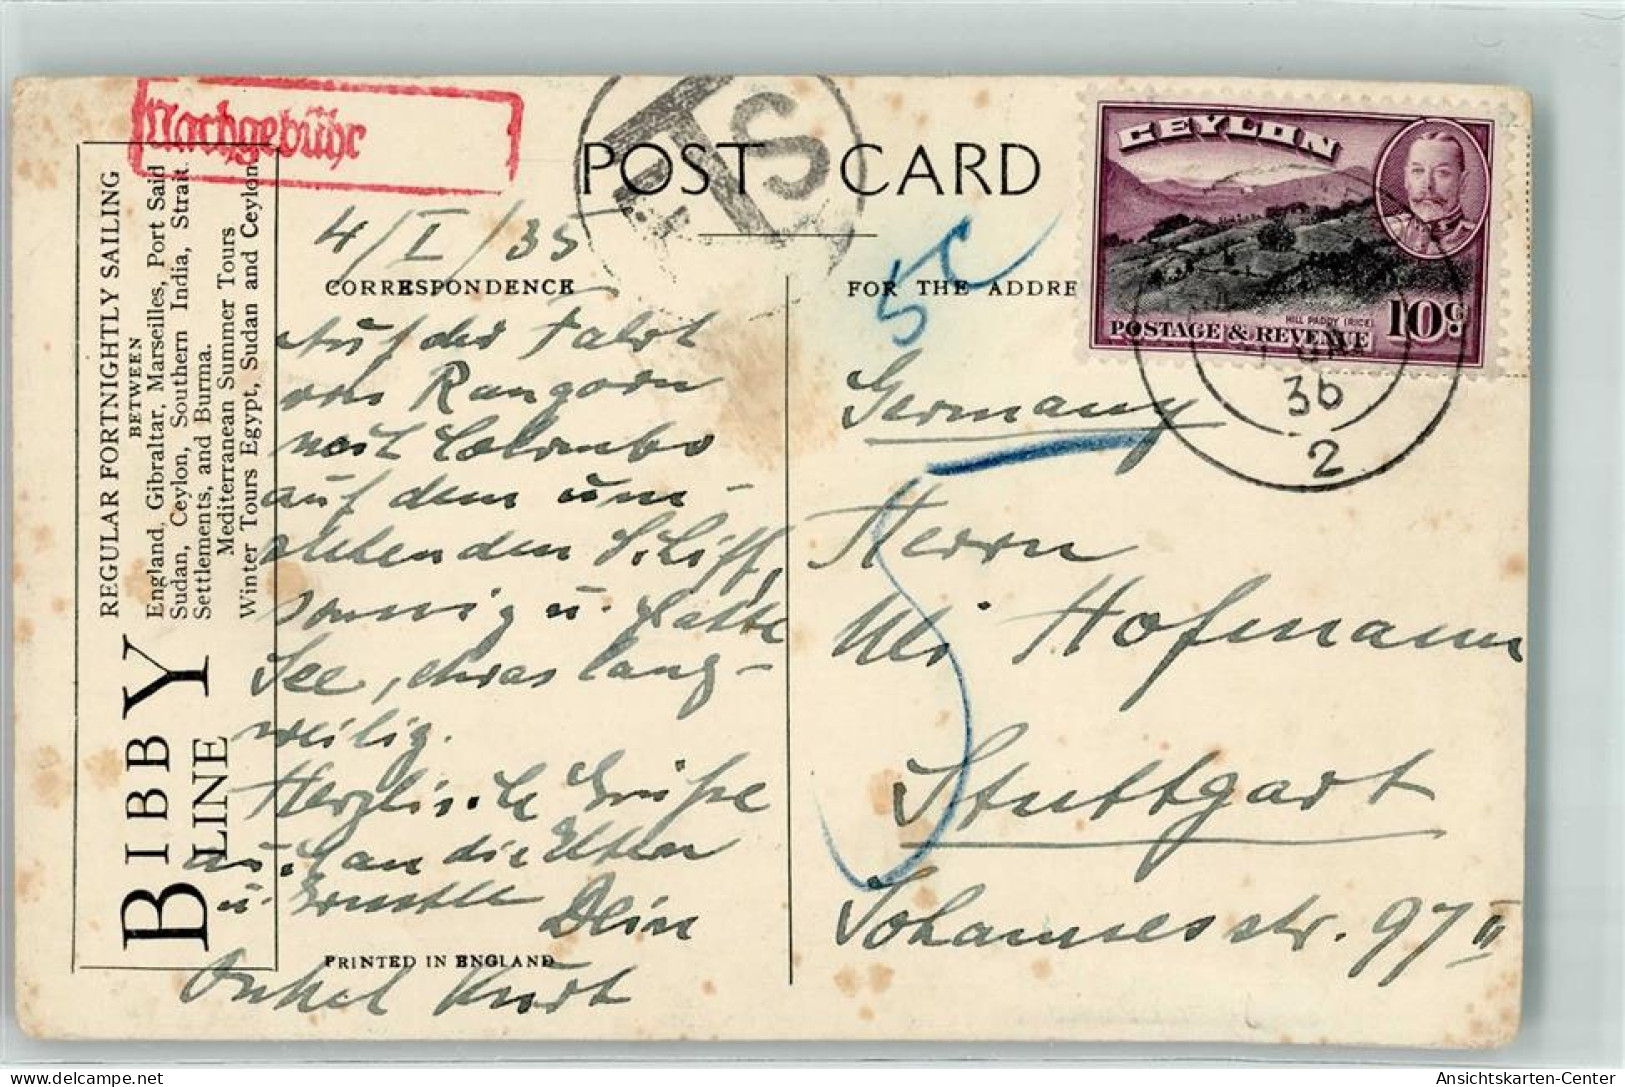 Nachgebühr
T S
POST CARD
CEYLON
HILL PADDY (RICE)
POSTAGE & REVENUE 10 c.
36
2
REGULAR FORTNIGHTLY SAILING
BETWEEN
England, Gibraltar, Marseilles, Port Said
Sudan, Ceylon, Southern India, Strait.
Settlements, and Burma.
Mediterranean Summer Tours
Winter Tours Egypt, Sudan and Ceylon
BIBBY
LINE
4/I/35
CORRESPONDENCE
Auf der Fahrt
von Rangoon
nach Colombo
auf dem um-
stehenden Schiff,
sonnig u. glatte
See, etwas lang-
weilig.
Herzlichste Grüße
auch an die Eltern
u. Dein
Onkel Kurt
PRINTED IN ENGLAND
FOR THE ADDRE
5c
Germany
5
Herrn
Uli Hofmann
Stuttgart
Johannesstr. 97 II
Ansichtskarten-Center
delcampe.net